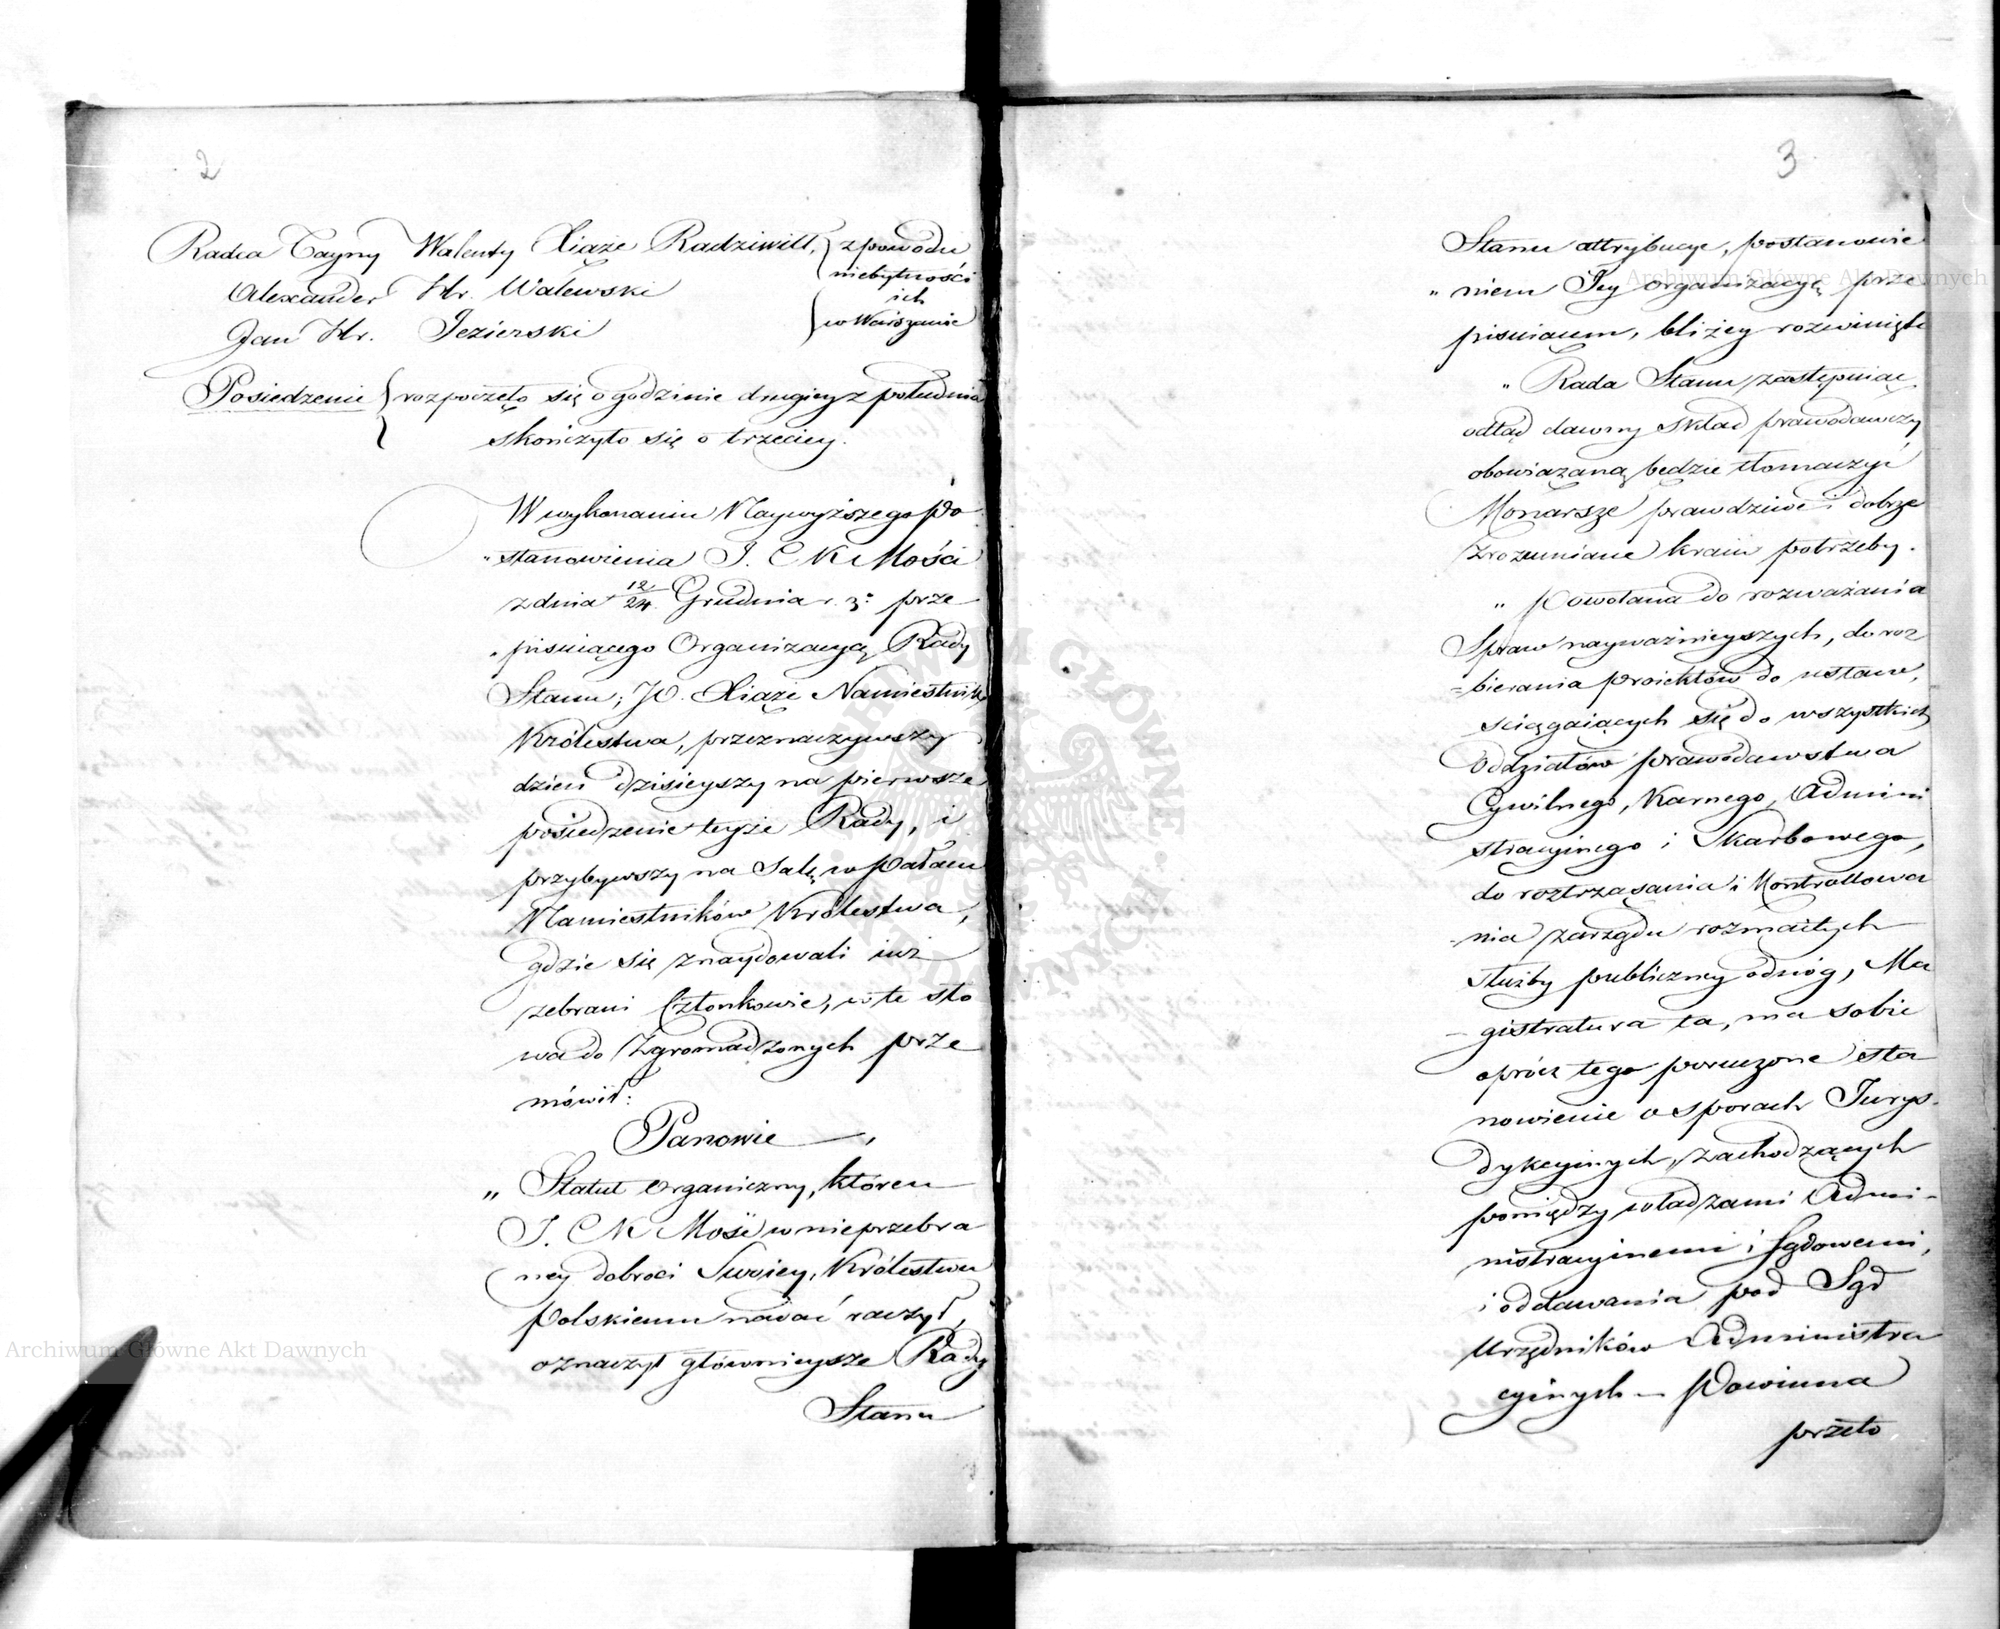 2
Radca Tayny Walenty Xiąże Radziwiłł,
Alexander Hr. Walewski
Jan Hr. Jezierski
z powodu
niebytności
ich
w Warszawie
Posiedzenie rozpoczęło się o godzinie drugiey z południa
skończyło się o trzeciey.
W wykonaniu Naywyższego Po
"stanowienia J. C K Mości
z dnia 12/24 Grudnia r. z: prze
"pisuiącego Organizacyą Rady
Stanu, JO. Xiąże Namiestnik
Królestwa, przeznaczywszy
dzień dzisieyszy na pierwsze
posiedzenie teyże Rady, i
przybywszy na Salę w Pałacu
Namiestników Królestwa,
gdzie się znaydowali iuż
zebrani Członkowie, w te sło
wa do Zgromadzonych prze
mówił:
Panowie —,
„ Statut Organiczny, którem
J. C K Mość w nieprzebra
ney dobroci Swoiey, Królestwu
Polskiemu nadać raczył,
oznaczył główniejsze Rady
Stanu
3
Stanu attrybucye, postanowie
"niem Jey organizacyą prze
pisuiącem, bliżey rozwinięte
„ Rada Stanu zastępuiąc
odtąd dawny skład prawodawczy
obowiązaną będzie tłomaczyć
Monarsze prawdziwe i dobrze
zrozumiane kraiu potrzeby.
„ Powołana do rozważania
Spraw nayważnieyszych, do roz
=bierania proiektów do ustaw,
ściągaiących się do wszystkich
Oddziałów prawodawstwa
Cywilnego, Karnego, Admini
stracyinego i Skarbowego,
do roztrząsania i Kontrollowa
-nia zarządu rozmaitych
służby publiczney odnóg, Ma
-gistratura ta, ma sobie
oprócz tego poruczone sta
nowienie o sporach Jurys-
dykcyinych, zachodzących
pomiędzy władzami Admi-
nistracyinemi i Sądowemi,
i oddawania pod Sąd
Urzędników Administra
cyinych – Powinna
przeto
Archiwum Główne Akt Dawnych
Archiwum Główne Akt Dawnych
ARCHIWUM GŁÓWNE AKT DAWNYCH